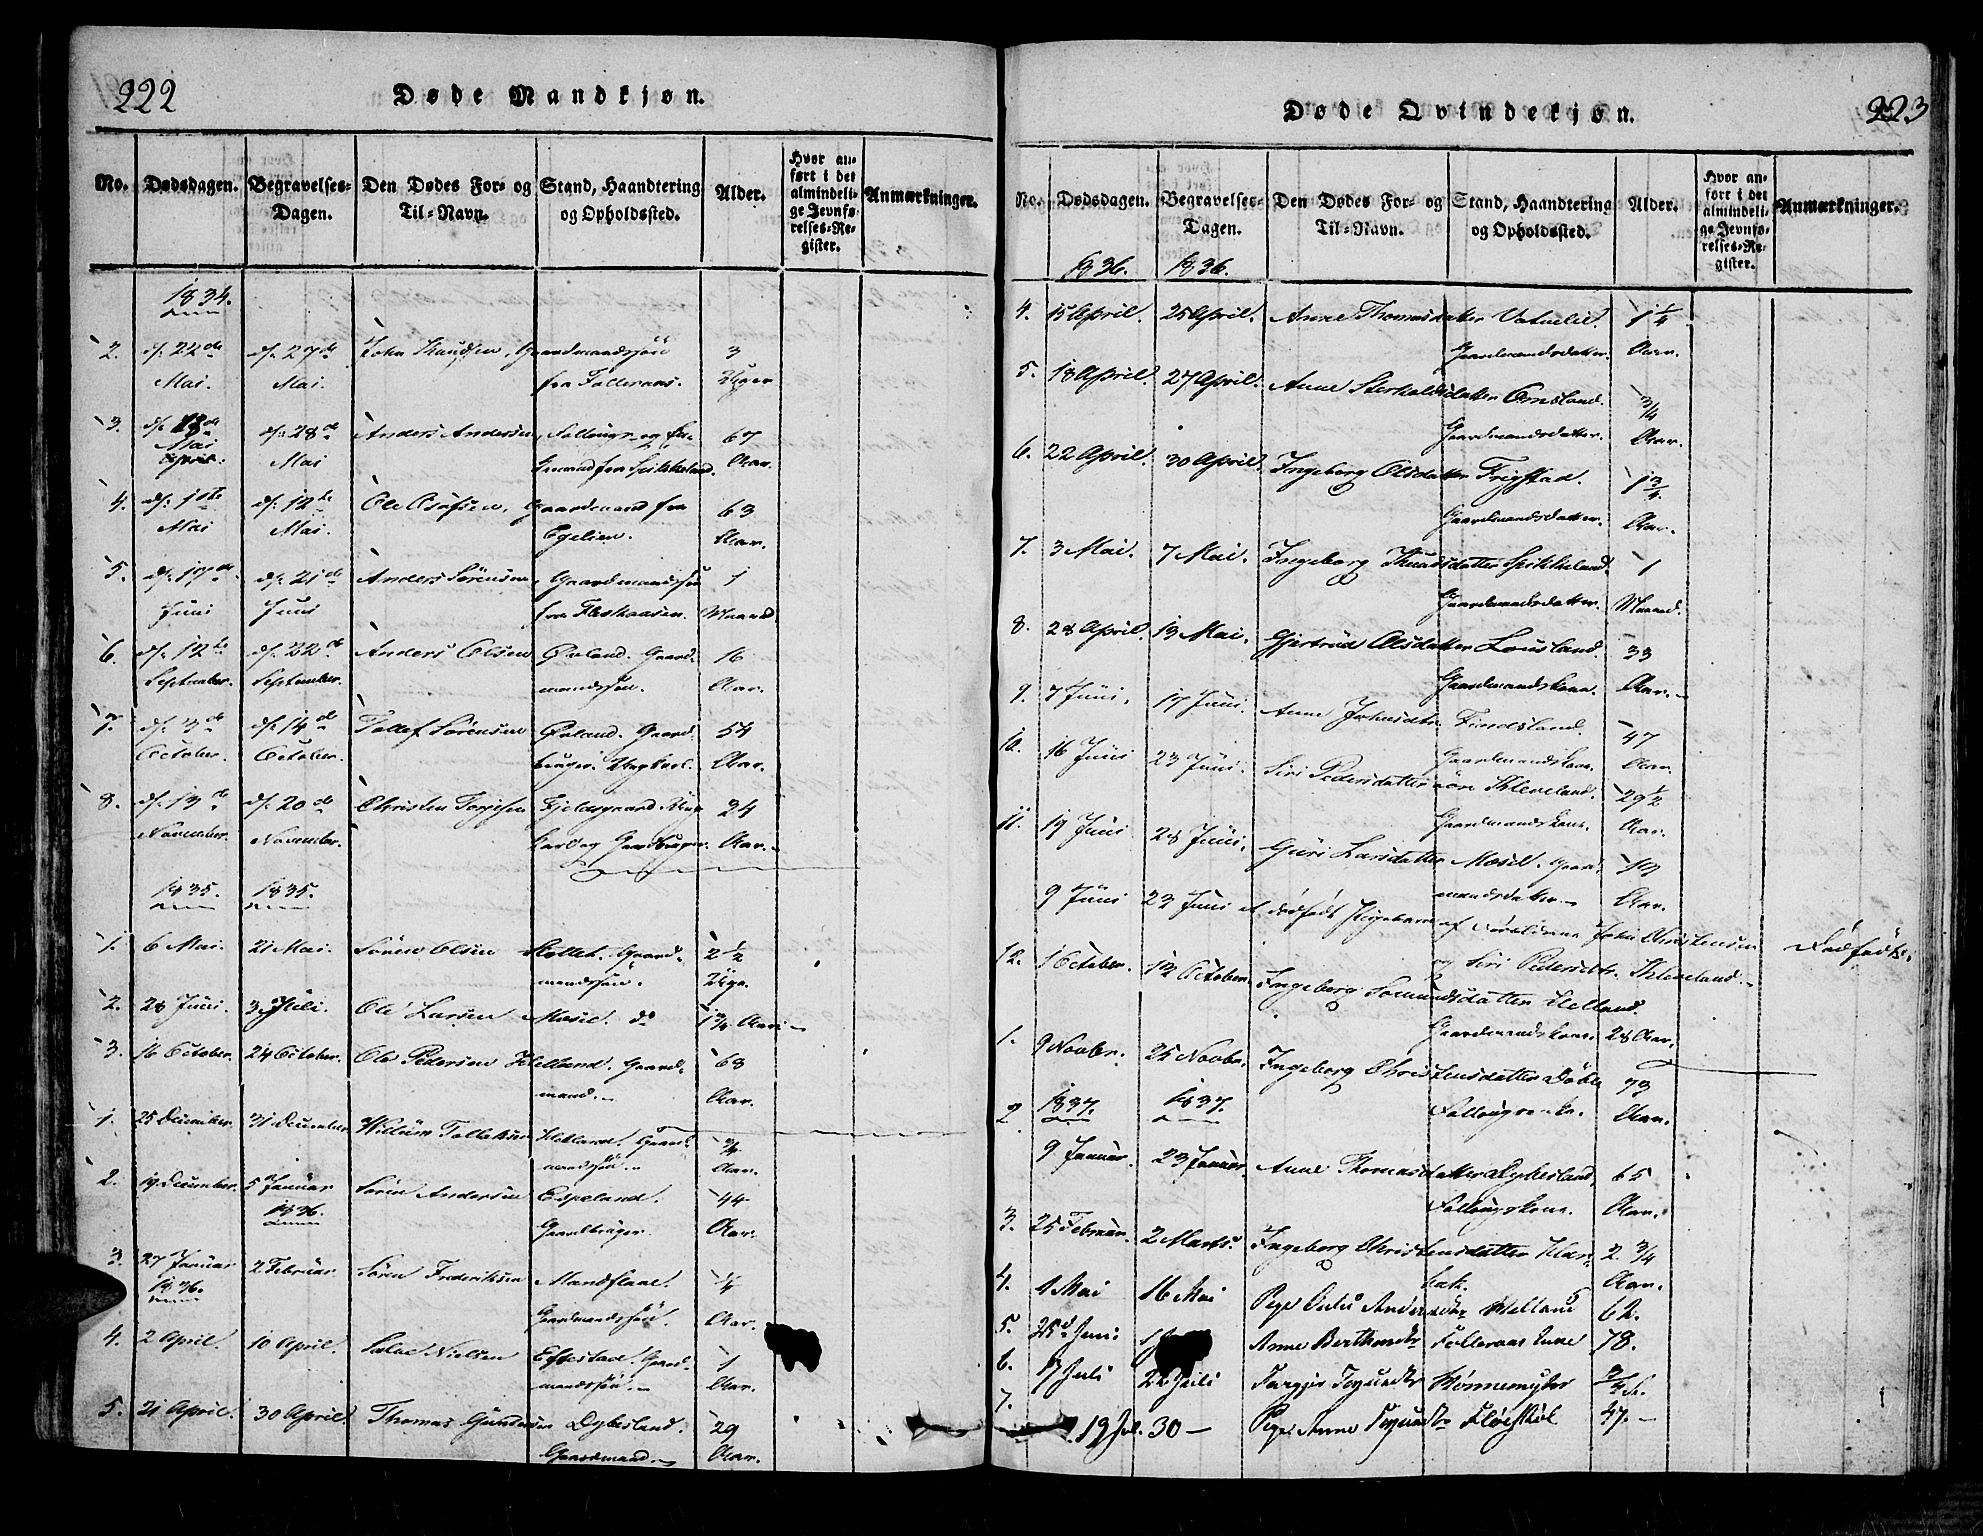 222
Døde Mandkjøn.
No. Dødsdagen. Begravelses-Dagen. Den Dødes For- og Til-Navn. Stand, Haandtering og Opholdssted. Alder. Hvor anført i det almindelige Jevnførelses-Register. Anmærkninger.
1834.
2. d. 22de d. 27de John Knudsen, Gaardmandssøn 3
Mai. Mai. fra Falleraas. Uger
3. d. 18de d. 28de Anders Andersen, Follougs og 67
Mai Mai fra Spikkeland. Aar.
4. d. 1ste d. 12te Ole Osufsen, Gaardmand fra 63
Mai Mai. Egelien. Aar.
5. d. 17de d. 21de Anders Sørensen, Gaardmandssøn 1
Juni Juni fra Maaned
6. d. 12te d. 22de Anders Olsen Øvland. Gaard- 16
September. September. mandssøn. Aar.
7. d. 3de d. 14de Tollef Sørensen Øvland. Gaard- 54
October. October. bruger. Ungkarl. Aar.
8. d. 13de d. 20de Christen Torjesen Fjeldsgaard. Ung- 24
November. November. karl og Gaardbruger. Aar.
1835. 1835.
1. 6 Mai. 21 Mai. Søren Olsen Gaard- 2 1/2
mandssøn. Uge.
2. 28 Juni. 3 Juli. Ole Larsen Mosel. do 1 3/4 Aar.
3. 16 October. 24 October. Ole Pedersen Helland. Gaard- 68
mand. Aar.
1. 25 December. 31 December Willum Tollefsen Gaard- 3/4
mandssøn. Aar.
2. 19 December. 5 Januar Søren Andersen Espeland. 44
1836. Gaardbruger. Aar.
3. 27 Januar 2 Februar Søren Frederiksen Mandflaae. 1/4
1836. Gaardmandssøn. Aar.
4. 2 April. 10 April. Salve Nielsen Eftestad. Gaard- 1
mandssøn. Aar.
5. 21 April. 30 April. Thomas Gundersen Dybesland. 29
Gaardmand. Aar.
223
Døde Qvindekjøn.
No. Dødsdagen. Begravelses-Dagen. Den Dødes For- og Til-Navn. Stand, Haandtering og Opholdssted. Alder. Hvor anført i det almindelige Jevnførelses-Register. Anmærkninger.
1836. 1836.
4. 15 April. 25 April. Anne Thomasdatter Vatnelie. 1 1/4
Gaardmandsdatter. Aar.
5. 18 April. 27 April. Anne Sterkelsdatter Ørnsland. 3/4
Gaardmandsdatter. Aar.
6. 22 April. 30 April. Ingeborg Olsdatter Frigstad. 1 3/4
Gaardmandsdatter. Aar.
7. 3 Mai. 7 Mai. Ingeborg Knudsdatter Spikkeland. 1
Gaardmandsdatter. Maaned.
8. 28 April. 13 Mai. Gjertrud Olsdatter Lousland. 33
Gaardmandskone. Aar.
9. 7 Juni. 17 Juni. Anne Johnsdtr. Findsland. 47
Gaardmandskone. Aar.
10. 16 Juni 23 Juni. Siri Pedersdatter Kleveland. 29 1/2
Gaardmandskone. Aar.
11. 19 Juni 28 Juni. Guri Larsdatter Mosel. Gaard- 13
mandsdatter. Aar.
9 Juni 23 Juni et dødfødt Pigebarn af Forældrene John Christensen Dødfødte.
og Siri Pedersdtr. Kleveland.
12. 1 October. 13 October. Ingeborg Somundsdatter Helland.
Gaardmandskone. 28 Aar.
1. 9 Novbr. 25 Novbr. Ingeborg Christensdatter 73
Aar.
1837. 1837.
2. 9 Januar. 23 Januar. Anne Thomasdatter Dybesland. 65
Follougskone. Aar.
3. 25 Februar. 2 Marts. Ingeborg Christensdatter Har- 2 3/4
bak. Aar.
4. 1 Mai 16 Mai Pige Andersdtr 62.
5. 25 Juni Anne Fulleraas Enke 78.
6. 17 Juli 22 Juli 3/4
7. 19 Jul. 30 — Pige Anne 47. —